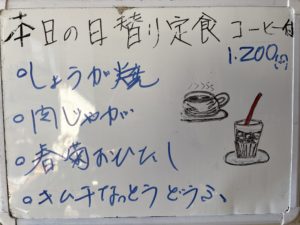 本日の日替り定食 コーヒー付
1,200円
○しょうが焼
○肉じゃが
○春菊おひたし
○キムチなっとうどうふ